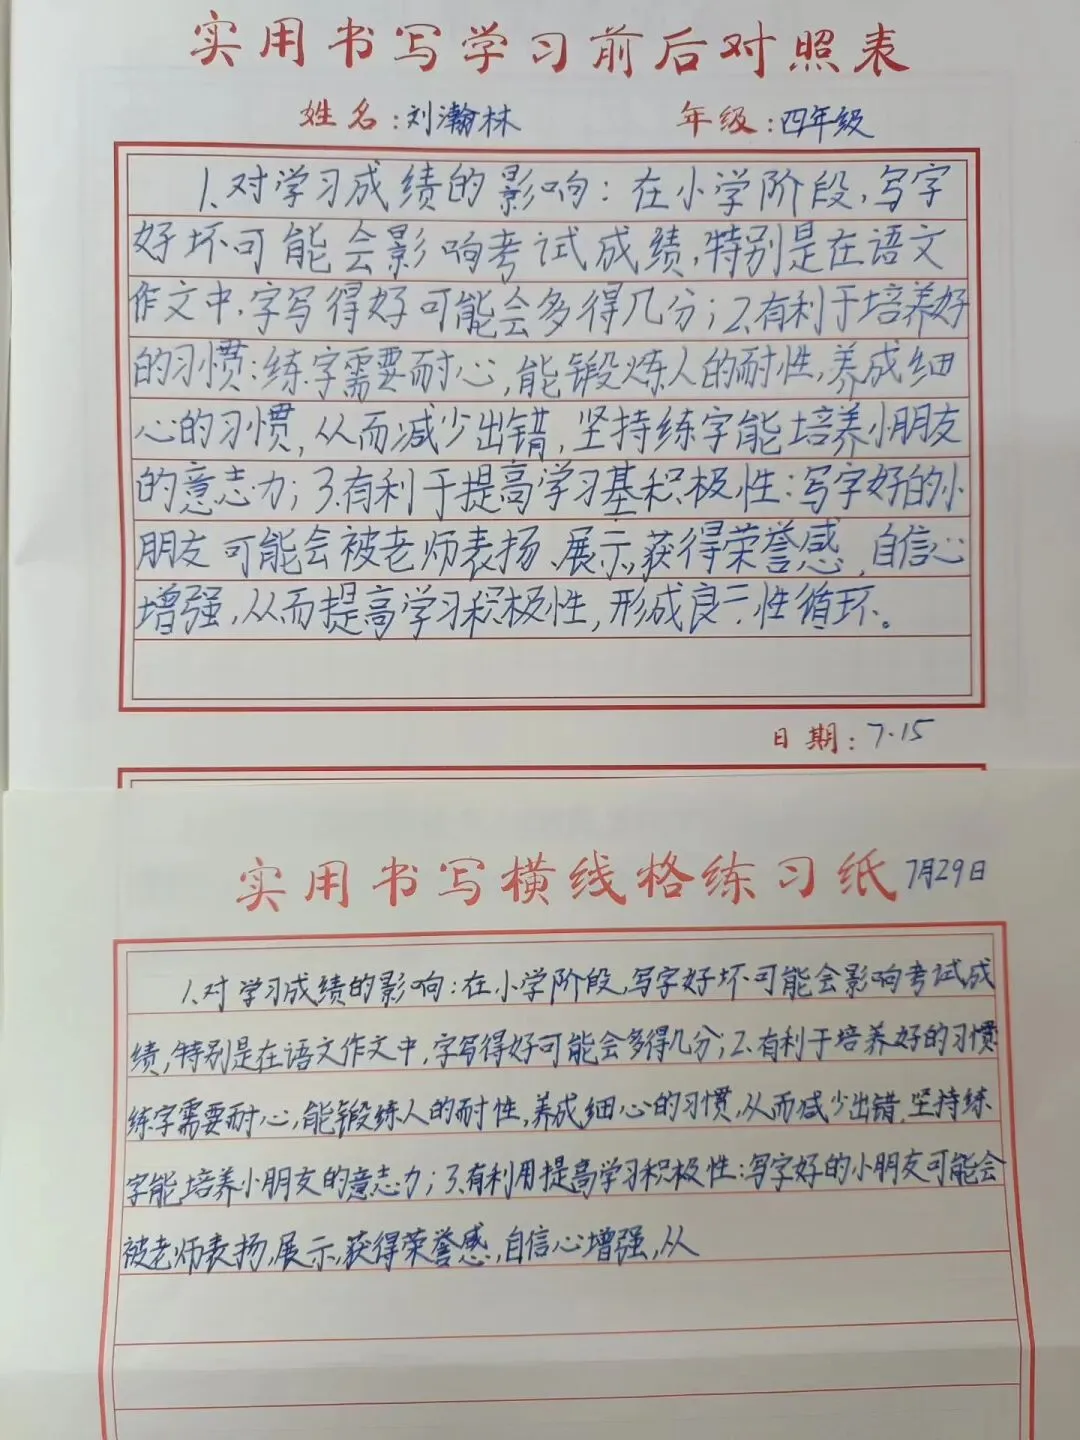 实用书写学习前后对照表
姓名：刘瀚林 年级：四年级
1.对学习成绩的影响：在小学阶段，写字
好坏可能会影响考试成绩，特别是在语文
作文中，字写得好可能会多得几分；2.有利于培养好
的习惯：练字需要耐心，能锻炼人的耐性，养成细
心的习惯，从而减少出错，坚持练字能培养小朋友
的意志力；3.有利于提高学习基积极性：写字好的小
朋友可能会被老师表扬、展示，获得荣誉感，自信心
增强，从而提高学习积极性，形成良二性循环。
日期：7.15
实用书写横线格练习纸 7月29日
1.对学习成绩的影响：在小学阶段，写字好坏可能会影响考试成
绩，特别是在语文作文中，字写得好可能会多得几分；2.有利于培养好的习惯
练字需要耐心，能锻练人的耐性，养成细心的习惯，从而减少出错，坚持练
字能培养小朋友的意志力；3.有利用提高学习积极性：写字好的小朋友可能会
被老师表扬，展示，获得荣誉感，自信心增强，从